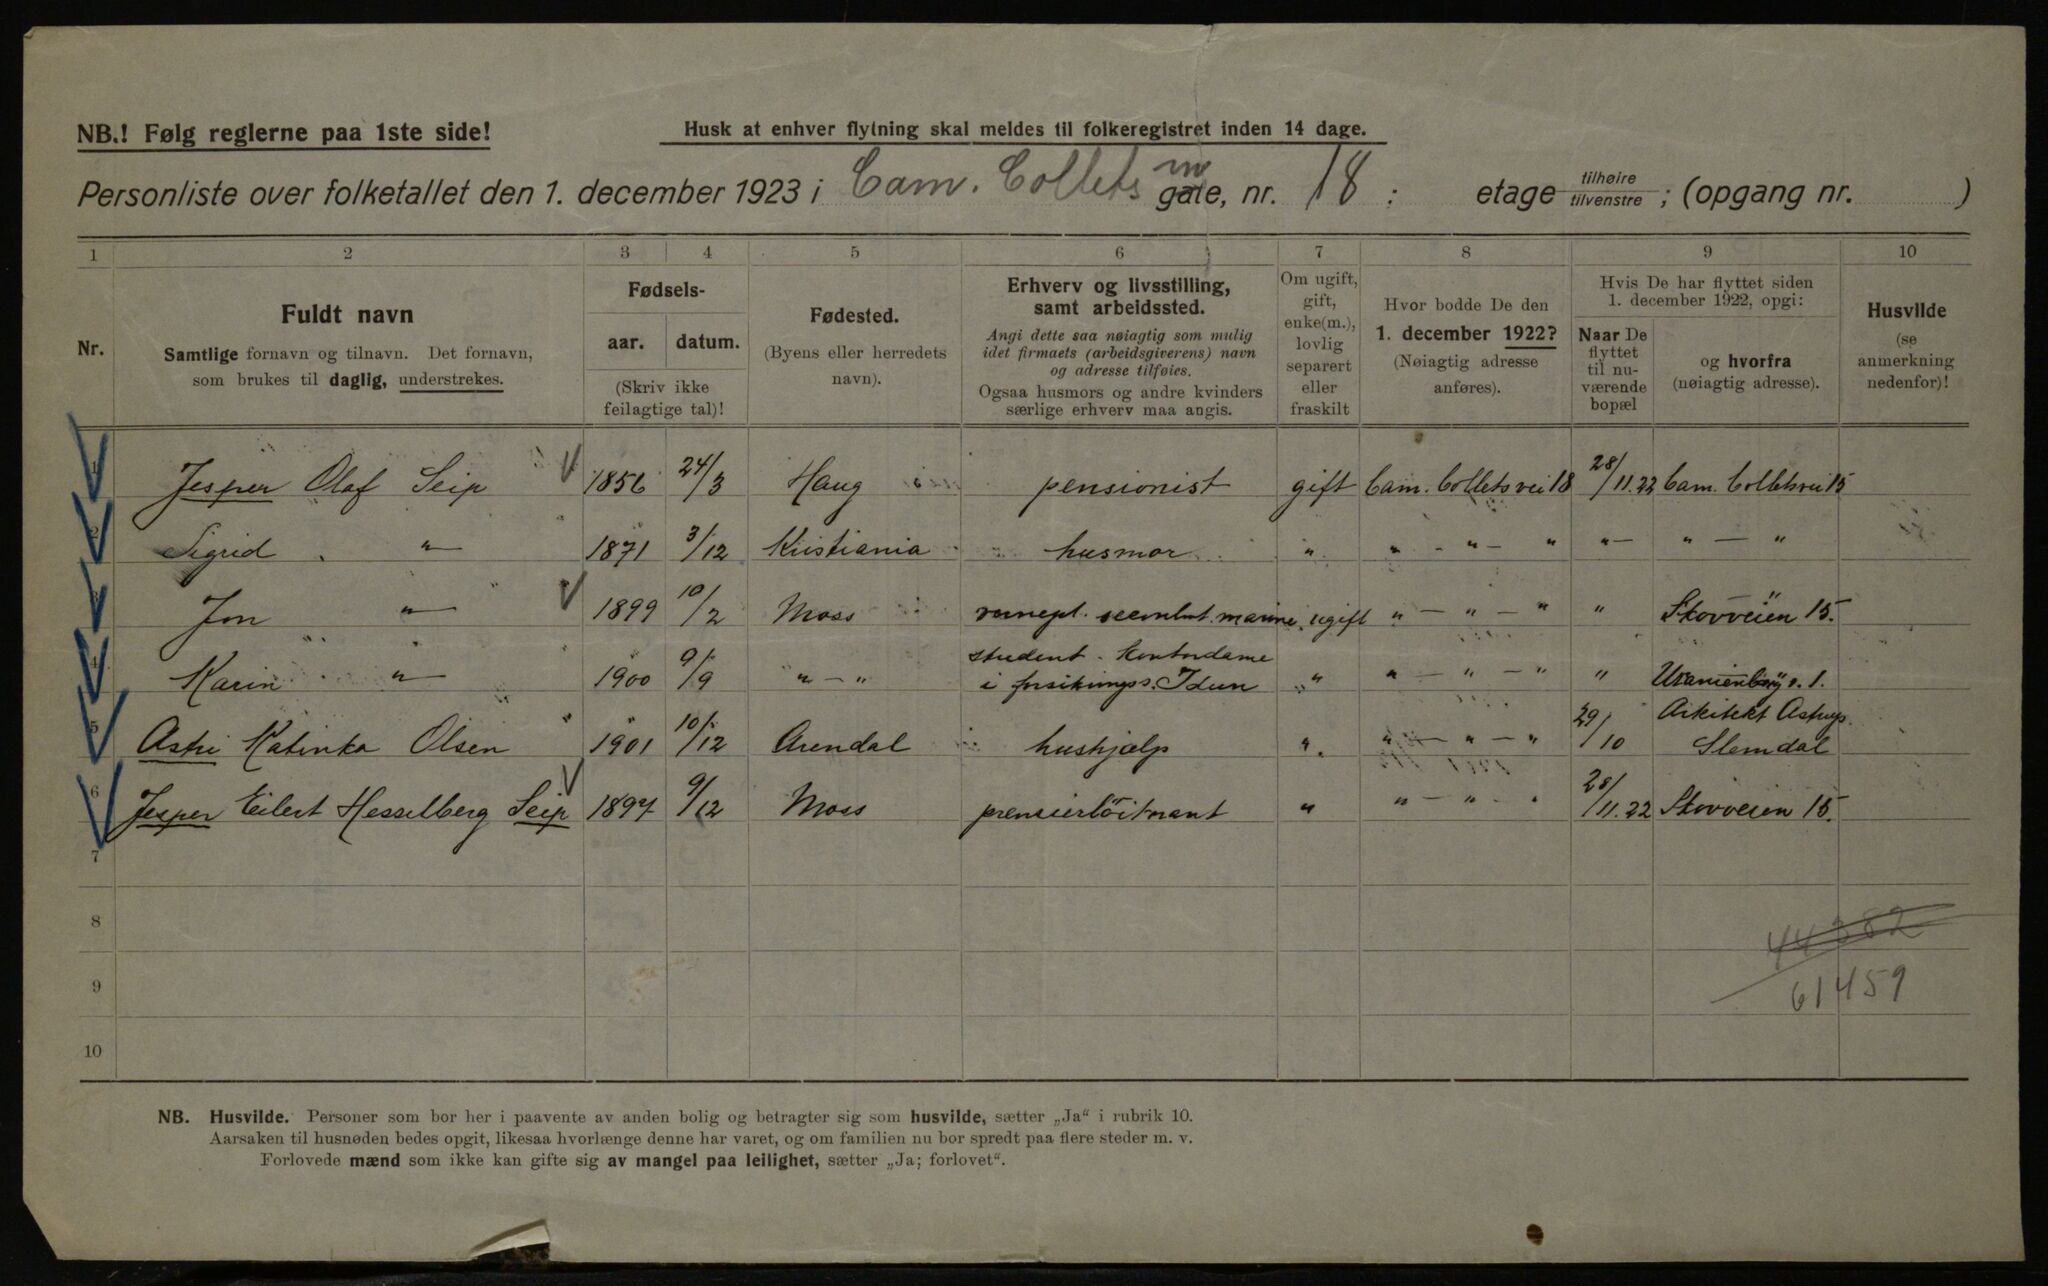 NB.! Følg reglerne paa 1ste side!
Husk at enhver flytning skal meldes til folkeregistret inden 14 dage.
Personliste over folketallet den 1. december 1923 i Cam. Collets gate, nr. 18 : etage tilhøire tilvenstre ; (opgang nr. )
1 2 3 4 5 6 7 8 9 10
Nr.
Fuldt navn
Samtlige fornavn og tilnavn. Det fornavn,
som brukes til daglig, understrekes.
Fødsels-
aar. datum.
(Skriv ikke
feilagtige tal)!
Fødested.
(Byens eller herredets
navn).
Erhverv og livsstilling,
samt arbeidssted.
Angi dette saa nøiagtig som mulig
idet firmaets (arbeidsgiverens) navn
og adresse tilføies.
Ogsaa husmors og andre kvinders
særlige erhverv maa angis.
Om ugift,
gift,
enke(m.),
lovlig
separert
eller
fraskilt
Hvor bodde De den
1. december 1922?
(Nøiagtig adresse
anføres).
Hvis De har flyttet siden
1. december 1922, opgi:
Naar De
flyttet
til nu-
værende
bopæl
og hvorfra
(nøiagtig adresse).
Husvilde
(se
anmerkning
nedenfor)!
1 Jesper Olaf Seip 1856 24/3 Haug pensionist gift Cam. Collets vei 18 28/11.22 Cam. Colletsvei 15
2 Sigrid " 1871 3/12 Kristiania husmor " " - " - " " - " - "
3 Jon " 1899 10/2 Moss marine ugift " - " - " " Skovveien 15.
4 Karin " 1900 9/9 " - " student. Kontordame
i forsikringss. Idun " " - " - " " Uranienborg v. 1.
5 Astri Katinka Olsen 1901 10/12 Arendal hushjælp " " - " - " 29/10 Arkitekt Astrup.
Slemdal
6 Jesper Eilert Hesselberg Seip 1897 9/12 Moss premierlöitnant " " - " - " 28/11.22 Skovveien 15.
7
8
44382
9
61459
10
NB. Husvilde. Personer som bor her i paavente av anden bolig og betragter sig som husvilde, sætter „Ja“ i rubrik 10.
Aarsaken til husnøden bedes opgit, likesaa hvorlænge denne har varet, og om familien nu bor spredt paa flere steder m. v.
Forlovede mænd som ikke kan gifte sig av mangel paa leilighet, sætter „Ja; forlovet“.